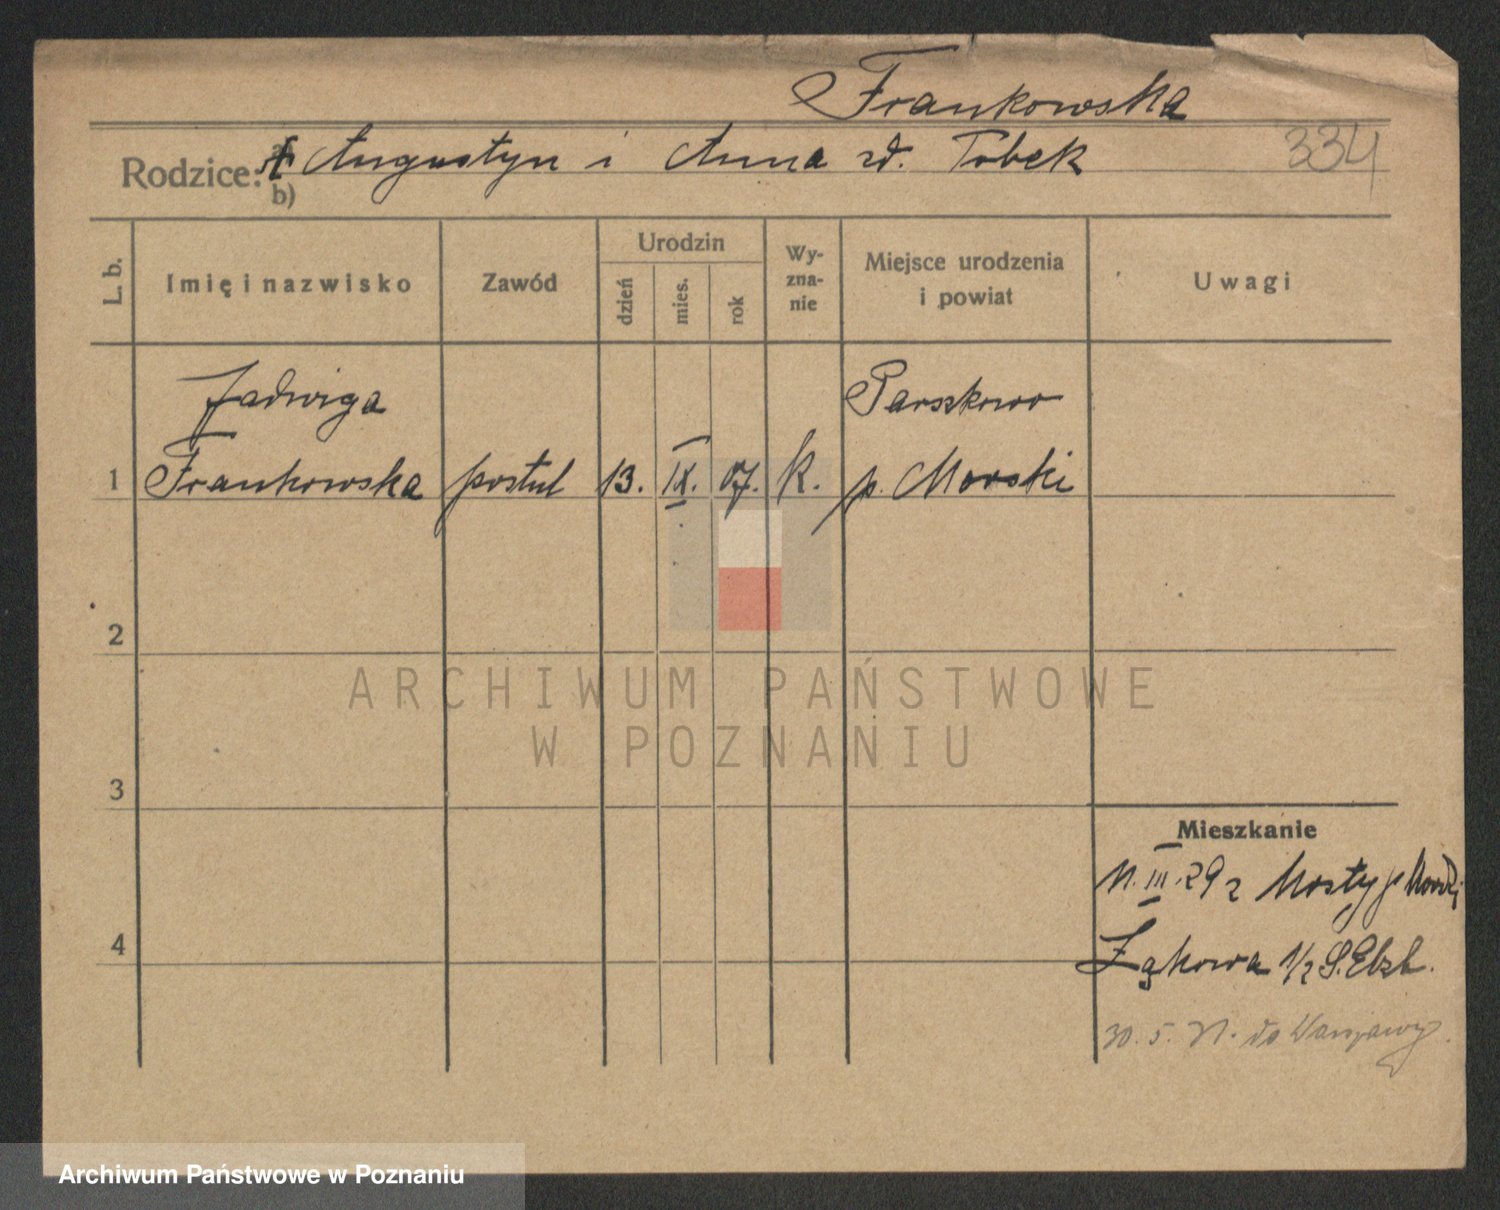 Frankowska
Rodzice: a) Augustyn i Anna zd. Tobek 334
b)
L. b. Imię i nazwisko Zawód Urodzin dzień mies. rok Wy-zna-nie Miejsce urodzenia i powiat Uwagi
Jadwiga Parszkowo
1 Frankowska postul 13. IX. 07. k. p. Morski
2
ARCHIWUM PAŃSTWOWE
W POZNANIU
3
Mieszkanie
11. III. 29 z Mosty p. Morski
4 Łąkowa 1/2 S. Elżb.
30. 5. 31. do Warszawy.
Archiwum Państwowe w Poznaniu